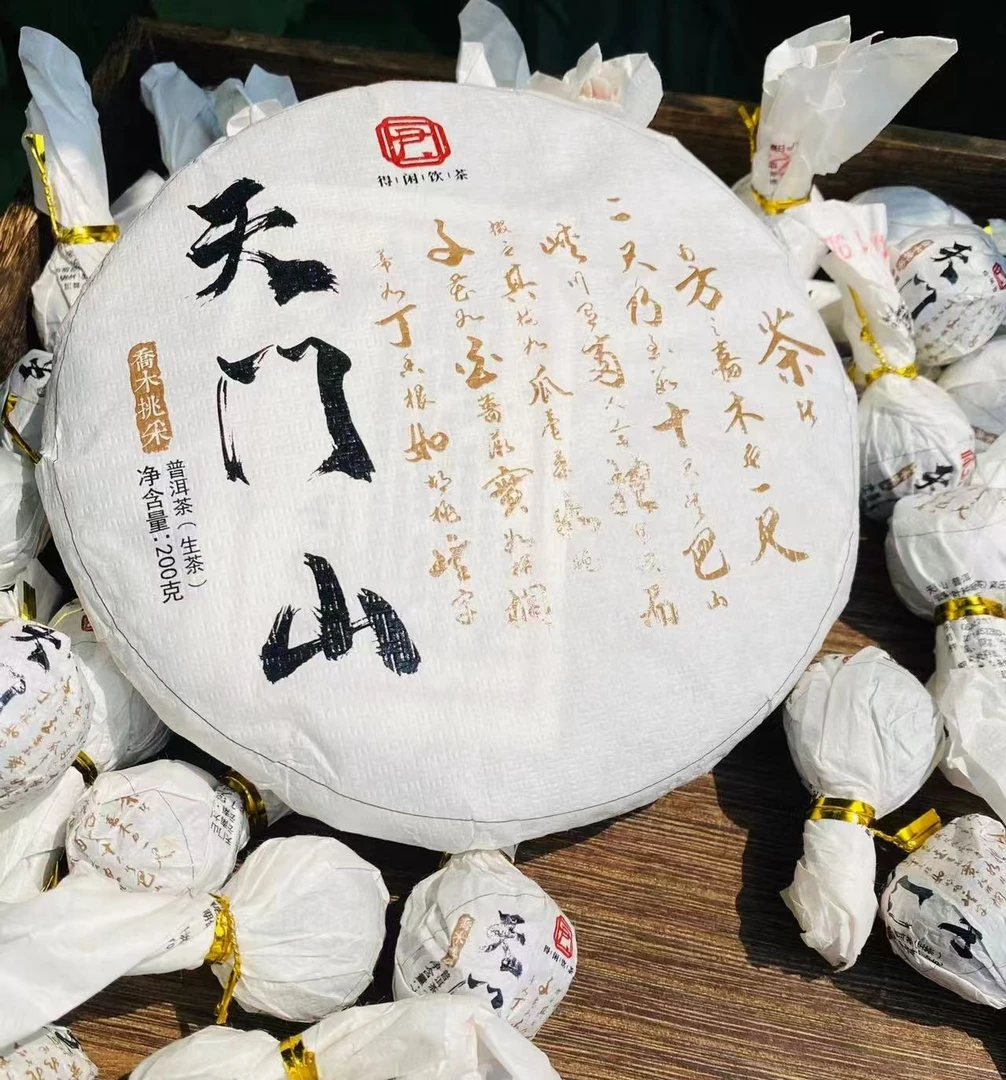 得闲饮茶
天门山
喬木挑采
普洱茶（生茶）
净含量：200克
茶者
南方之嘉木也一尺
二尺乃至数十尺其巴山
峡川有两人合抱者伐而
掇之其树如瓜芦叶如栀
子花如白蔷薇实如栟榈
蒂如丁香根如胡桃
天门
得闲饮茶